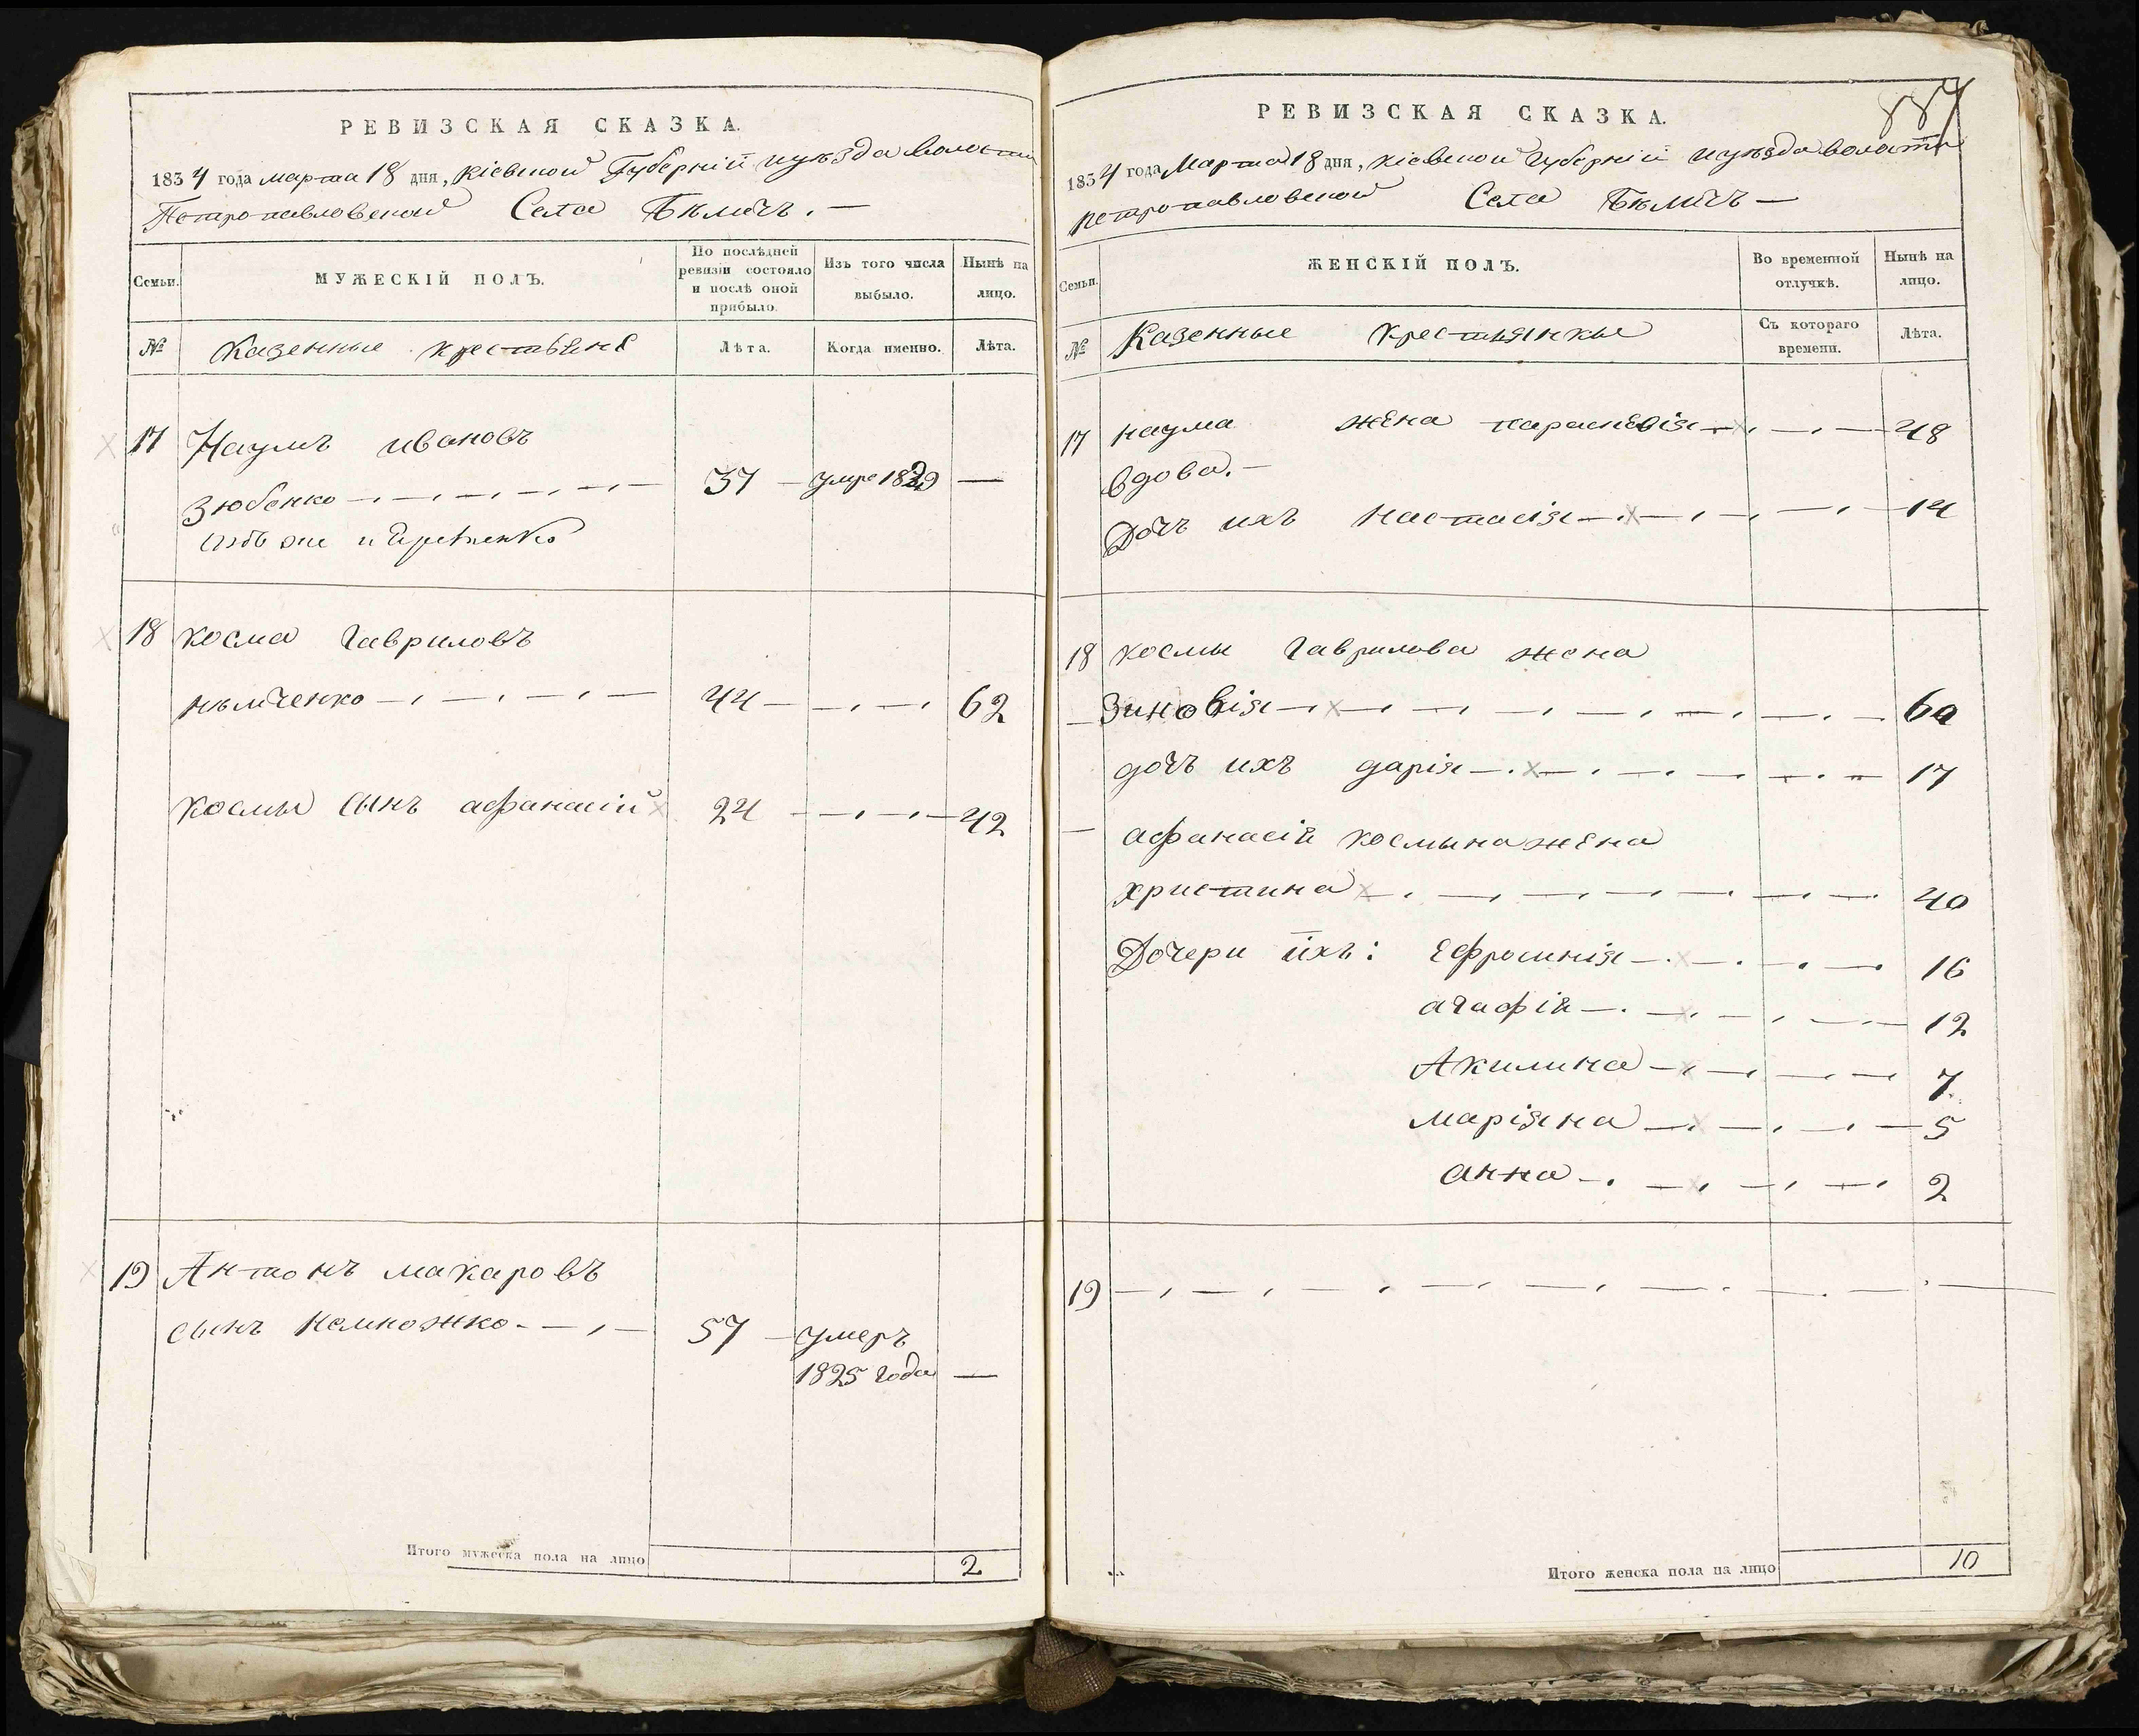 РЕВИЗСКАЯ СКАЗКА.
1834 года марта 18 дня, Кіевской Губерніи и уѣзда волости
Петропавловской Села Бѣличъ. —
Семьи.
МУЖЕСКІЙ ПОЛЪ.
По послѣдней ревизіи состояло и послѣ оной прибыло.
Изъ того числа выбыло.
Нынѣ на лицо.
№
Казенные крестьяне
Лѣта.
Когда именно.
Лѣта.
17 Наумъ ивановъ
Зюбенко 37 умре 1829 —
онъ же и
18 косма Гавриловъ
нѣмченко 44 62
космы сынъ афанасій 24 42
19 Антонъ макаровъ
сынъ немножко 57 умеръ
1825 года —
Итого мужеска пола на лицо 2
887
РЕВИЗСКАЯ СКАЗКА.
1834 года Марта 18 дня, кіевской губерніи и уѣзда воласти
петропавловской Села Бѣличъ —
Семьи.
ЖЕНСКІЙ ПОЛЪ.
Во временной отлучкѣ.
Нынѣ на лицо.
№
Казенные крестьянкы
Съ котораго времени.
Лѣта.
17 наума жена параскевія 48
вдова. —
Дочъ ихъ настасія 14
18 космы Гаврилова жена
Зиновія 60
дочъ ихъ дарія 17
афанасія космына жена
христина 40
Дочери ихъ: Ефросинія 16
агафія 12
Акилина 7
маріяна 5
анна 2
19
Итого женска пола на лицо 10